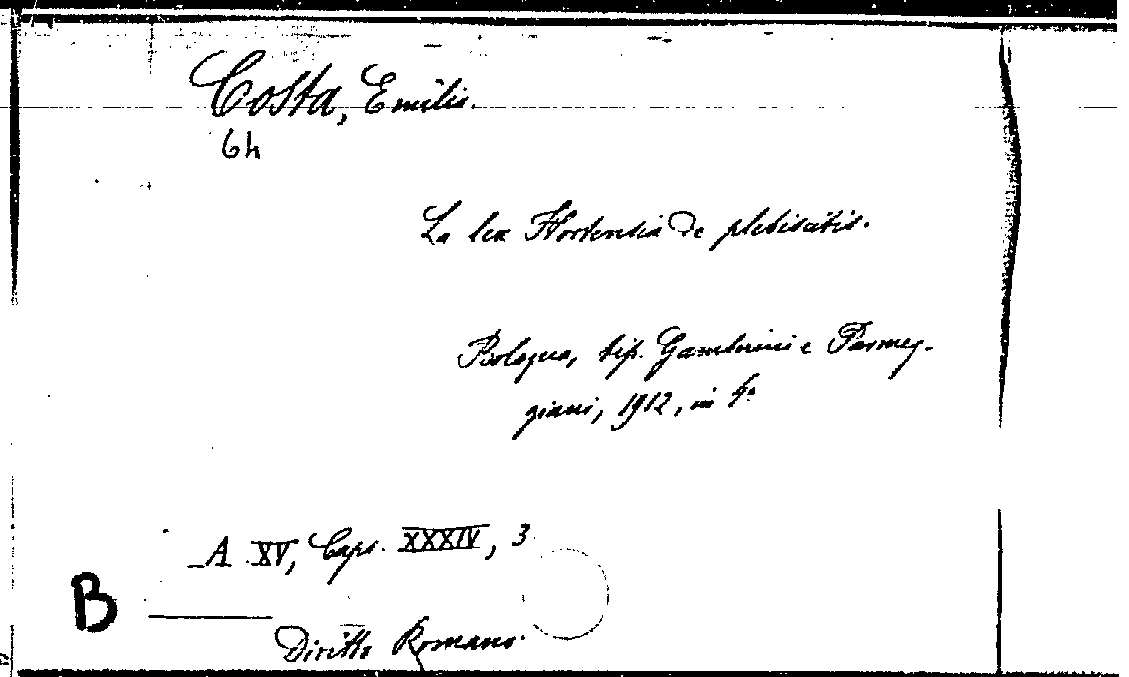 Costa, Emilio.
6h
La lex Hortensia de plebiscitis.
Bologna, tip. Gamberini e Parmeg-
giani, 1912, in 4°
A XV, Caps. XXXIV, 3
B
Diritto Romano